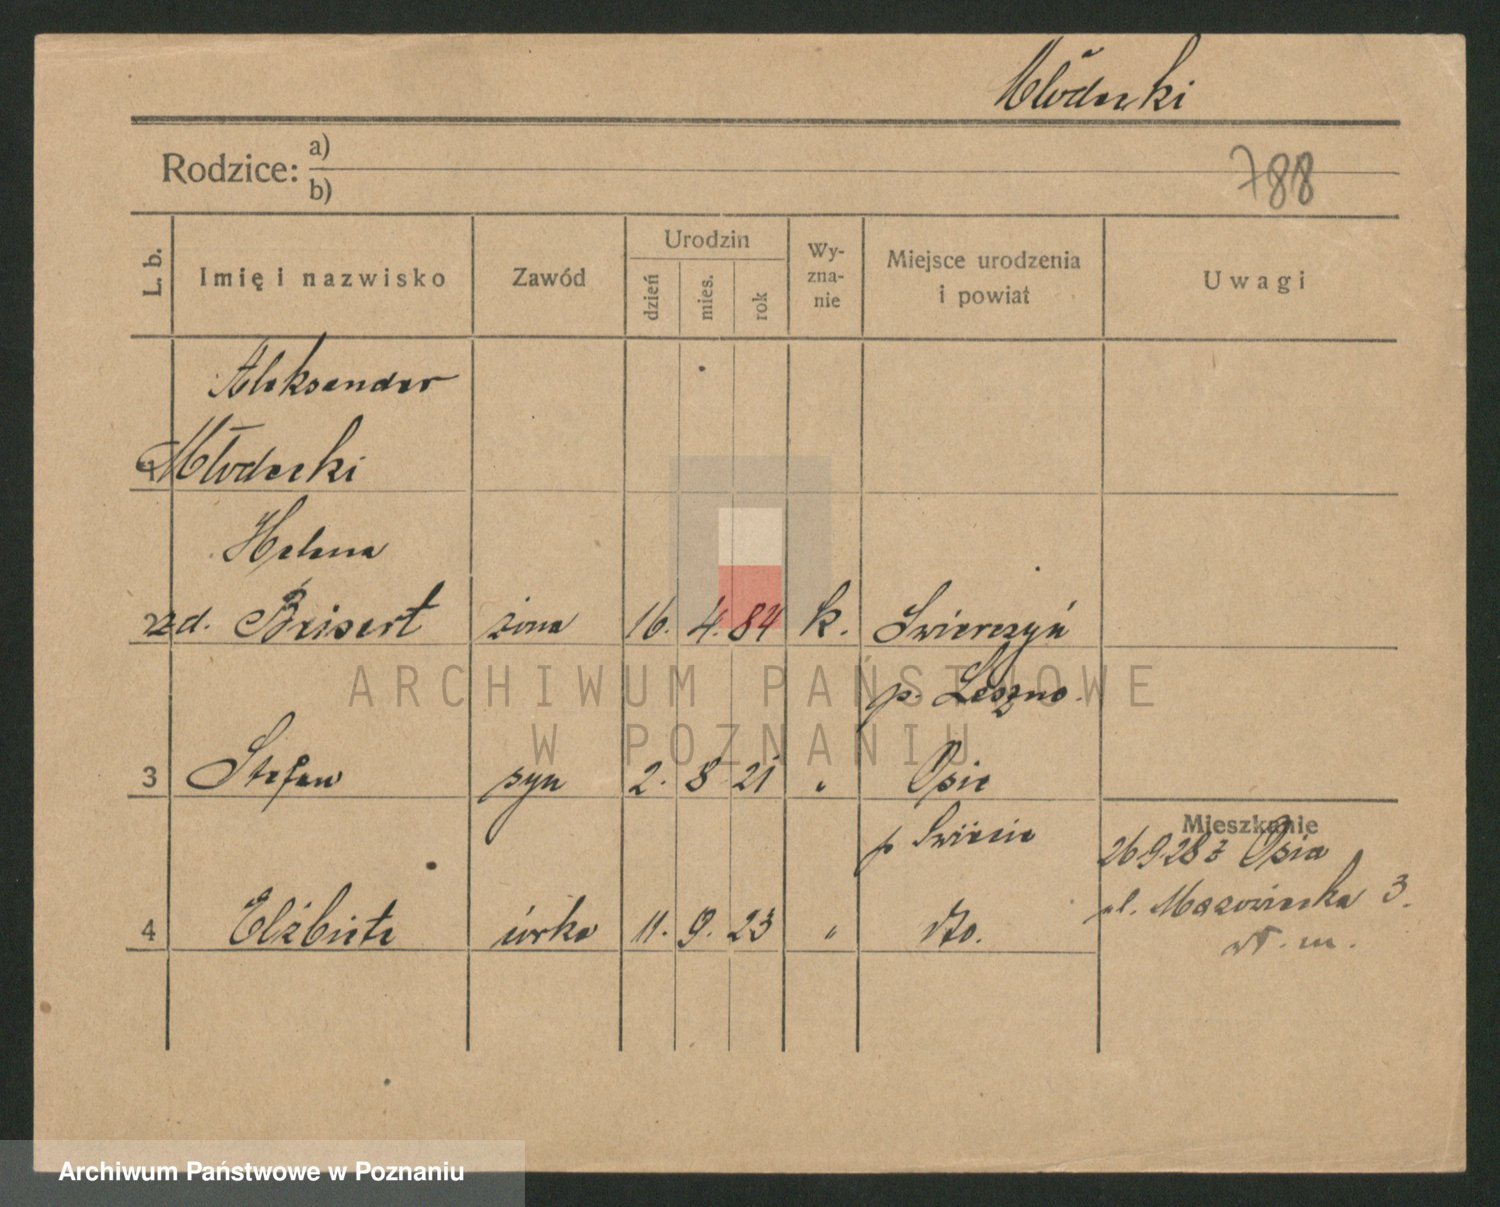 Młodecki
Rodzice: a)
b)
788
L. b.
Imię i nazwisko
Zawód
Urodzin
dzień
mies.
rok
Wy-
zna-
nie
Miejsce urodzenia
i powiat
Uwagi
Aleksander
1 Młodecki
Helena
2 zd. Beisert żona 16. 4. 84 k. Swierczyń
p. Leszno.
3 Stefan syn 2. 8. 21 " Osie
p Swiecie
4 Elżbieta córka 11. 9. 23 " dto.
Mieszkanie
26 9 28 z Osia
ul. Mazowiecka 3.
ARCHIWUM PAŃSTWOWE
W POZNANIU
Archiwum Państwowe w Poznaniu